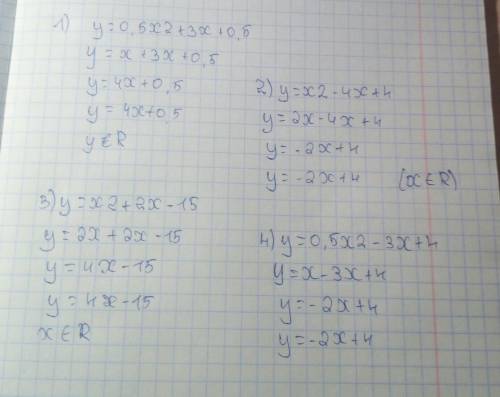 1) y=0,5x2+3x+0,5
y=x+3x+0,5
y=4x+0,5
y=4x+0,5
y∈R
2) y=x2-4x+4
y=2x-4x+4
y=-2x+4
y=-2x+4 (x∈R)
3) y=x2+2x-15
y=2x+2x-15
y=4x-15
y=4x-15
x∈R
4) y=0,5x2-3x+4
y=x-3x+4
y=-2x+4
y=-2x+4